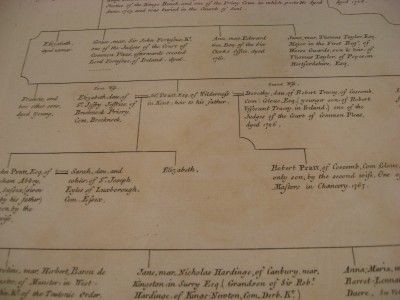 Elizabeth,
dyed unmar.
Grace, mar. Sir John Fortescue, Kt.
one of the Judges of the Court of
Common Pleas, afterwards created
Lord Fortescue of Ireland. dyed.
Anne, mar. Edward
Office. dyed
Jane, mar. Thomas Taylor Esq.
Major in the First Regt. of
Horse Guards, son & heir of
Thomas Taylor of Popeson
Hertfordshire, Esq.
Francis, and
two other sons,
dyed young.
First Wife.
Elizabeth, dau. of
Sr. Jeffry Jeffries of
Brecknock Priory,
Com. Brecknock.
Pratt, Esq. of Wilderness
in Kent, heir to his father.
Second Wife.
Dorothy, dau. of Robert Tracy, of Coscomb
Com. Glouc. Esq. (younger son of Robert
Viscount Tracy in Ireland,) one of the
Judges of the Court of Common Pleas,
dyed 1726.
John Pratt, Esq. of
Abby,
Sussex, (given
by his father)
son, by the
wife.
Sarah, dau. and
coheir of Sr. Joseph
Eyles of Luxborough,
Com. Essex.
Elizabeth.
Robert Pratt, of Coscomb, Com. Glouc.
only son, by the second wife, One of
Masters in Chancery. 1763.
mar. Herbert, Baron de
of Munster, in West-
Kt. of the Teutonic Order.
Jane, mar. Nicholas Hardinge, of Canbury, near
Kingston in Surry Esq. (Grandson of Sir Robt.
Hardinge, of Kings-Newton, Com. Derb. Kt.)
Anna Maria, m
Barret-Lennar
Dacre.